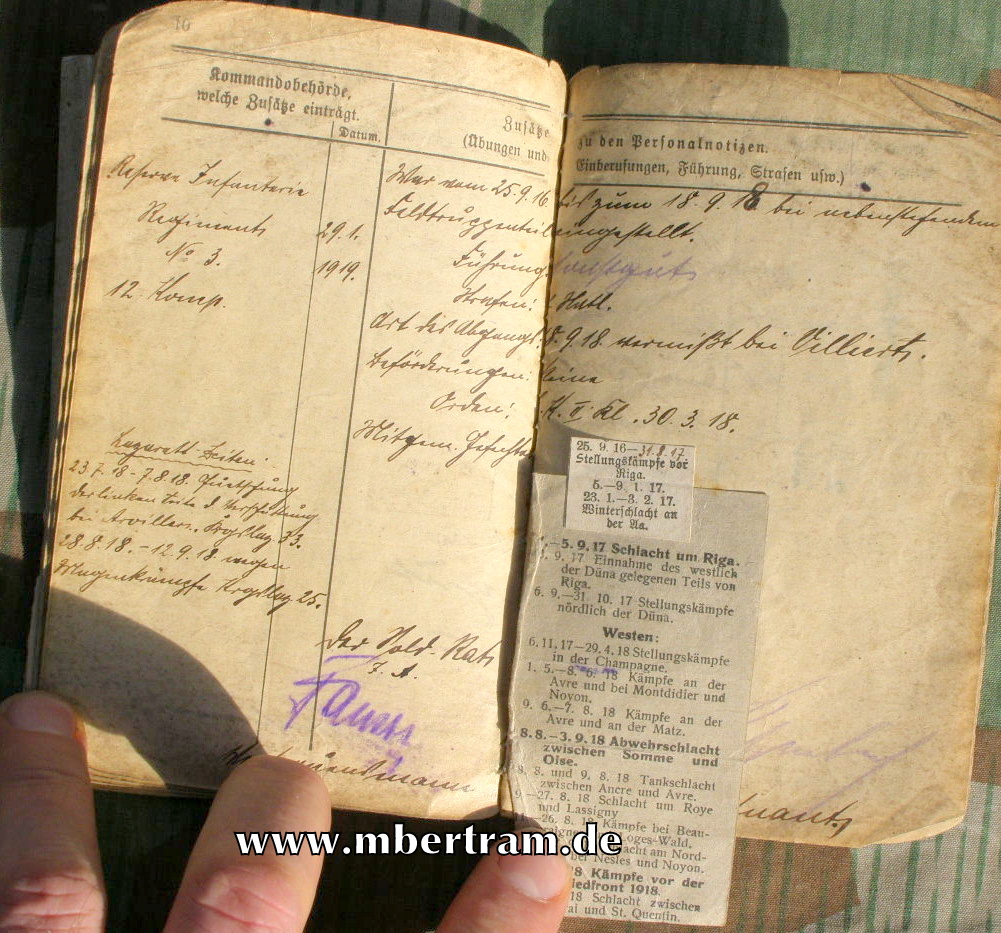 10
Kommandobehörde,
welche Zusätze einträgt.
Datum.
Zusätze
(Übungen und
Reserve Infanterie
Regiments
No 3.
12. Komp.
29.1.
1919.
War vom 25.9.16
Feldtruppenteil
Führung:
Strafen:
Art des Abgangs:
Beförderungen:
Orden:
Mitgem. Gefechte
Lazarett-Zeiten:
23.7.18-7.8.18. Quetschung
der linken Seite d. Verschüttung
bei Arvillers.
28.8.18.-12.9.18 wegen
Magenkrämpfe 25.
Der Sold. Rat
I. A.
zu den Personalnotizen.
Einberufungen, Führung, Strafen usw.)
bis zum 18.9.18 bei nebenstehendem
eingestellt.
9.18. vermißt bei Villiers.
keine
K. II. Kl. 30.3.18.
25. 9. 16—31.8.17
Stellungskämpfe vor
Riga.
5.—9. 1. 17.
23. 1.—3. 2. 17.
Winterschlacht an
der Aa.
—5. 9. 17 Schlacht um Riga.
. 9. 17 Einnahme des westlich
der Düna gelegenen Teils von
Riga.
6. 9.—31. 10. 17 Stellungskämpfe
nördlich der Düna.
Westen:
6. 11. 17—29. 4. 18 Stellungskämpfe
in der Champagne.
1. 5.—8. 6. 18 Kämpfe an der
Avre und bei Montdidier und
Noyon.
9. 6.—7. 8. 18 Kämpfe an der
Avre und an der Matz.
8. 8.—3. 9. 18 Abwehrschlacht
zwischen Somme und
Oise.
8. 8. und 9. 8. 18 Tankschlacht
zwischen Ancre und Avre.
—27. 8. 18 Schlacht um Roye
und Lassigny
—26. 8. 18 Kämpfe bei Beau-
Loges-Wald.
am Nord-
bei Nesles und Noyon.
18 Kämpfe vor der
1918.
18 Schlacht zwischen
und St. Quentin.
www.mbertram.de